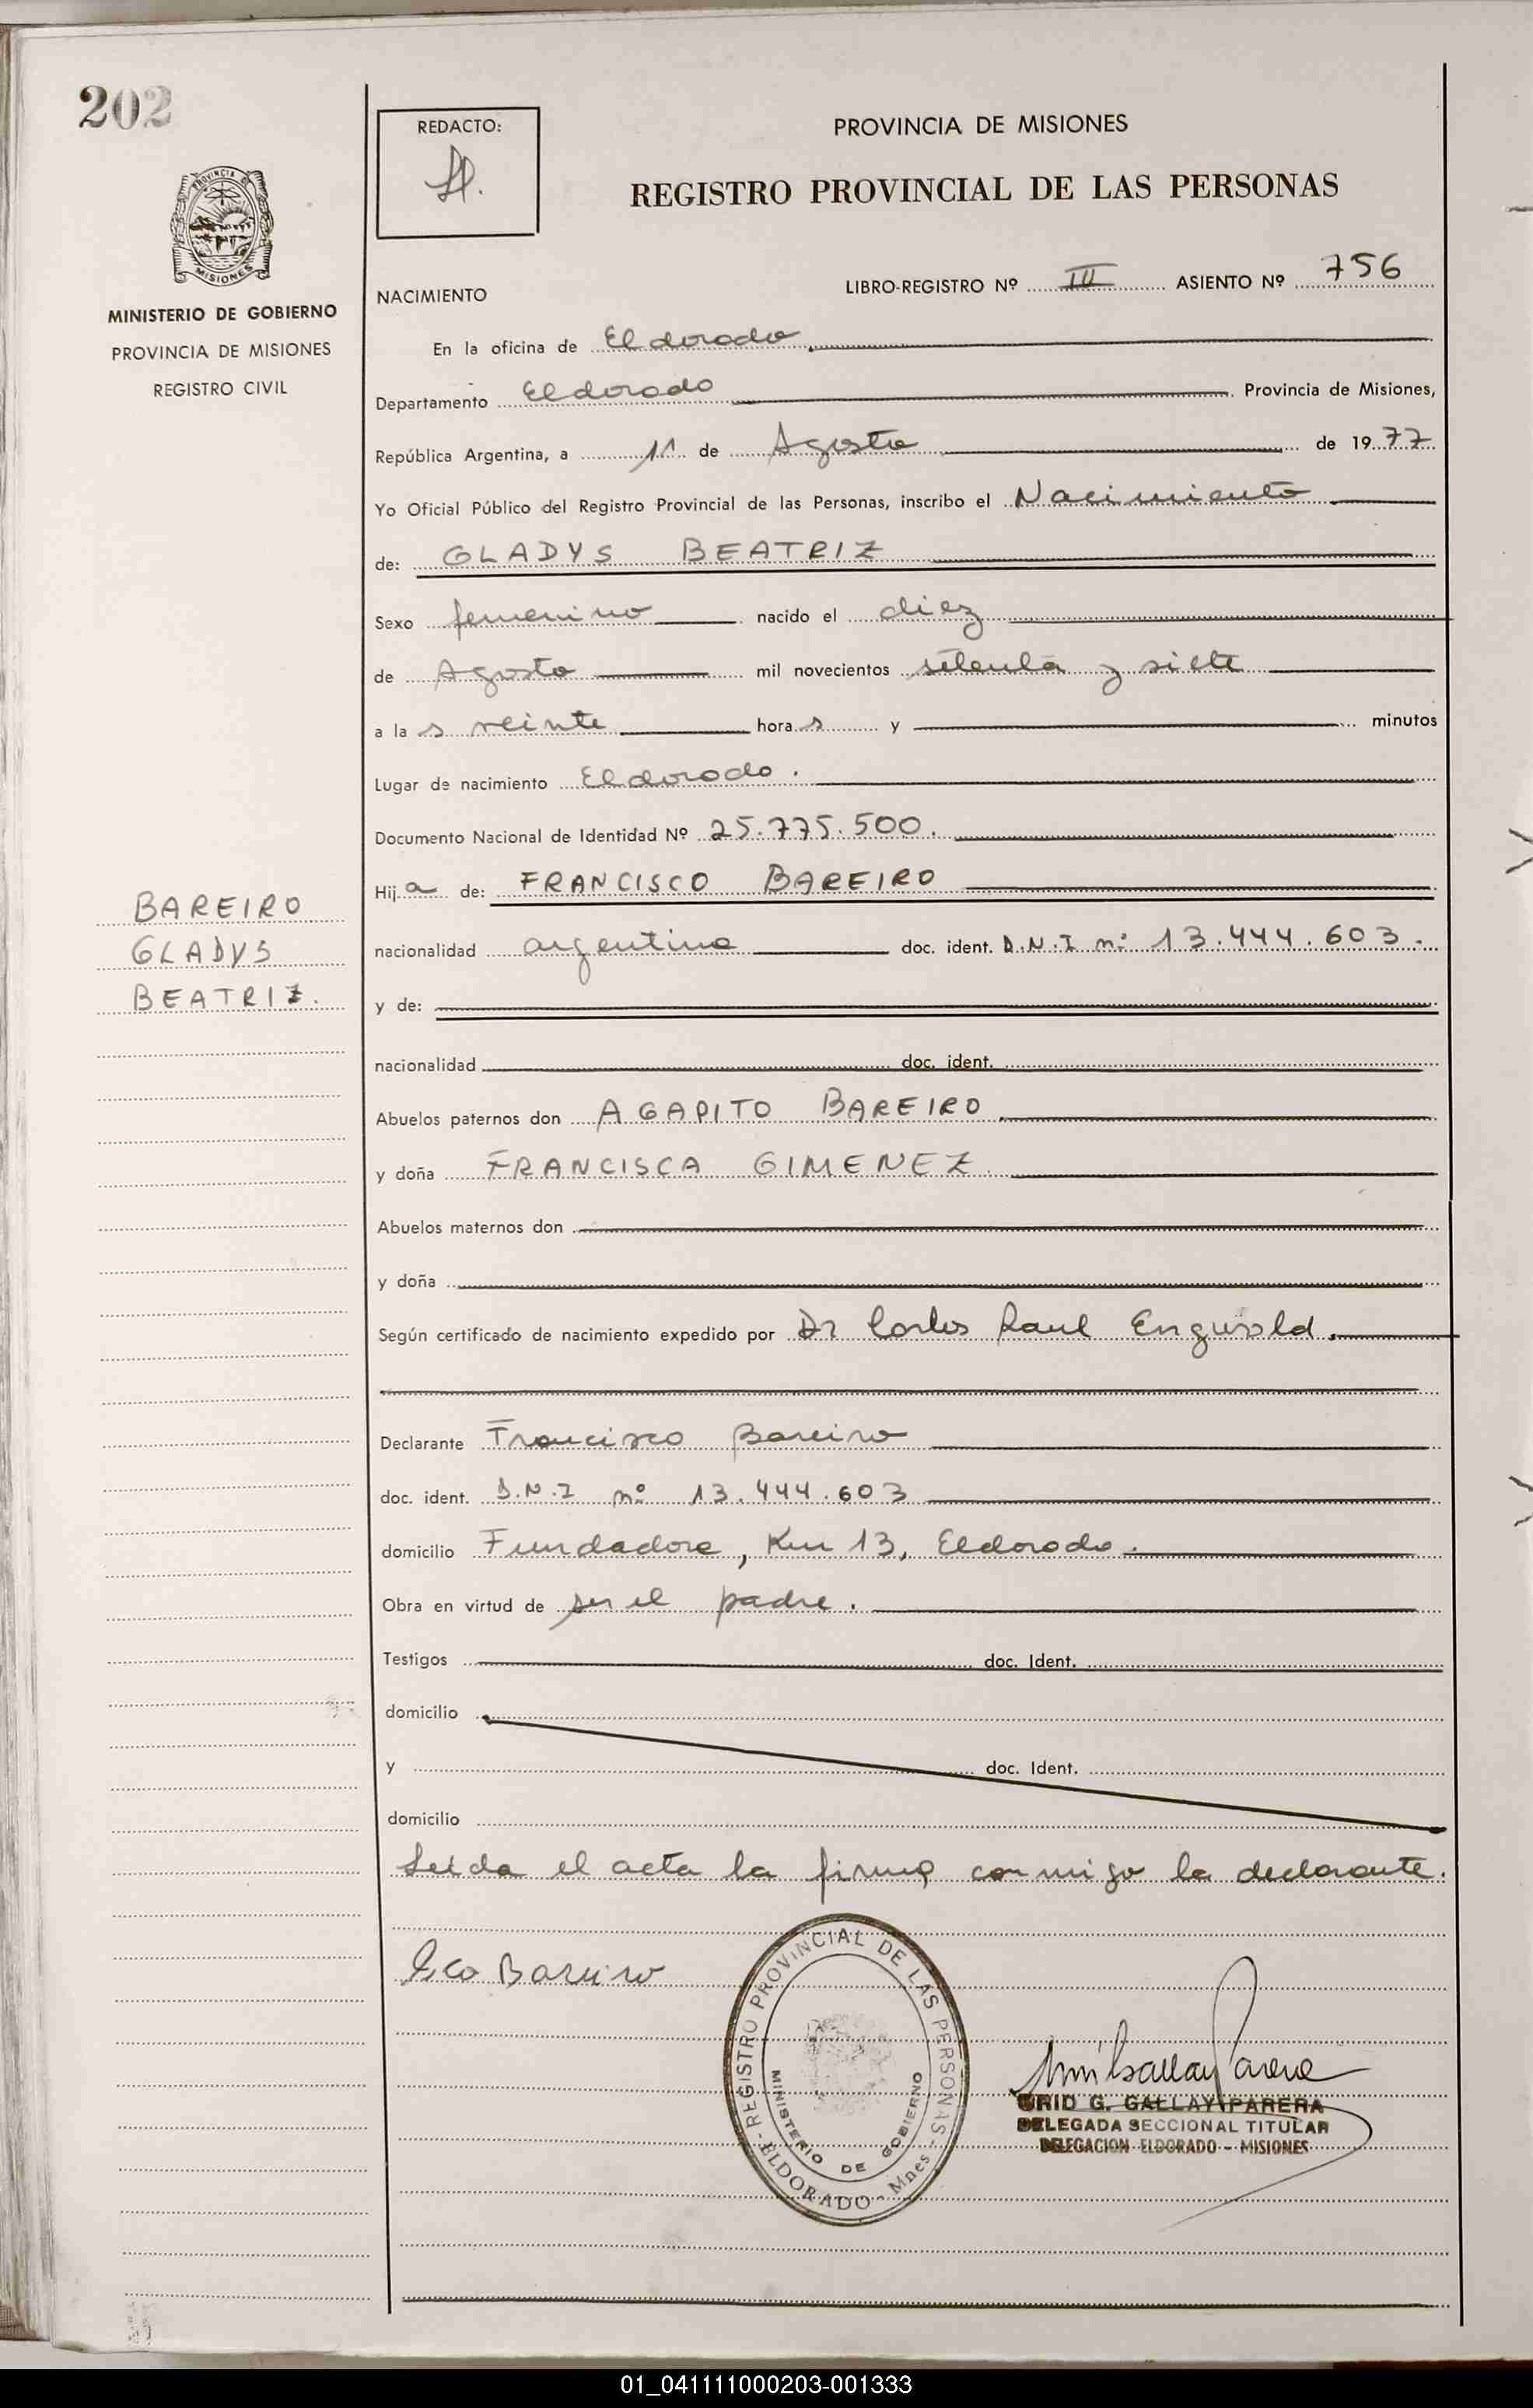 202
REDACTO:
PROVINCIA DE MISIONES
REGISTRO PROVINCIAL DE LAS PERSONAS
PROVINCIA DE
MISIONES
MINISTERIO DE GOBIERNO
PROVINCIA DE MISIONES
REGISTRO CIVIL
NACIMIENTO
LIBRO-REGISTRO Nº III ASIENTO Nº 756
En la oficina de Eldorado.
Departamento Eldorado Provincia de Misiones,
República Argentina, a 11 de Agosto de 1977
Yo Oficial Público del Registro Provincial de las Personas, inscribo el Nacimiento
de: GLADYS BEATRIZ
Sexo femenino nacido el diez
de Agosto mil novecientos setenta y siete
a la s veinte hora s y minutos
Lugar de nacimiento Eldorado.
Documento Nacional de Identidad Nº 25.775.500.
Hij a de: FRANCISCO BAREIRO
BAREIRO
GLADYS
BEATRIZ.
nacionalidad argentina doc. ident. D.N.I nº 13.444.603.
y de:
nacionalidad doc. ident.
Abuelos paternos don AGAPITO BAREIRO.
y doña FRANCISCA GIMENEZ.
Abuelos maternos don
y doña
Según certificado de nacimiento expedido por Dr Carlos Raul Engwald.
Declarante Francisco Bareiro
doc. ident. D.N.I nº 13.444.603
domicilio Fundadora, Km 13, Eldorado.
Obra en virtud de ser el padre.
Testigos doc. Ident.
domicilio
y doc. Ident.
domicilio
Leida el acta la firma conmigo la declarante.
Fco Bareiro
REGISTRO PROVINCIAL DE LAS PERSONAS
MINISTERIO DE GOBIERNO
ELDORADO - Mnes
URID G. GALLAY PARERA
DELEGADA SECCIONAL TITULAR
DELEGACION ELDORADO - MISIONES
01_041111000203-001333